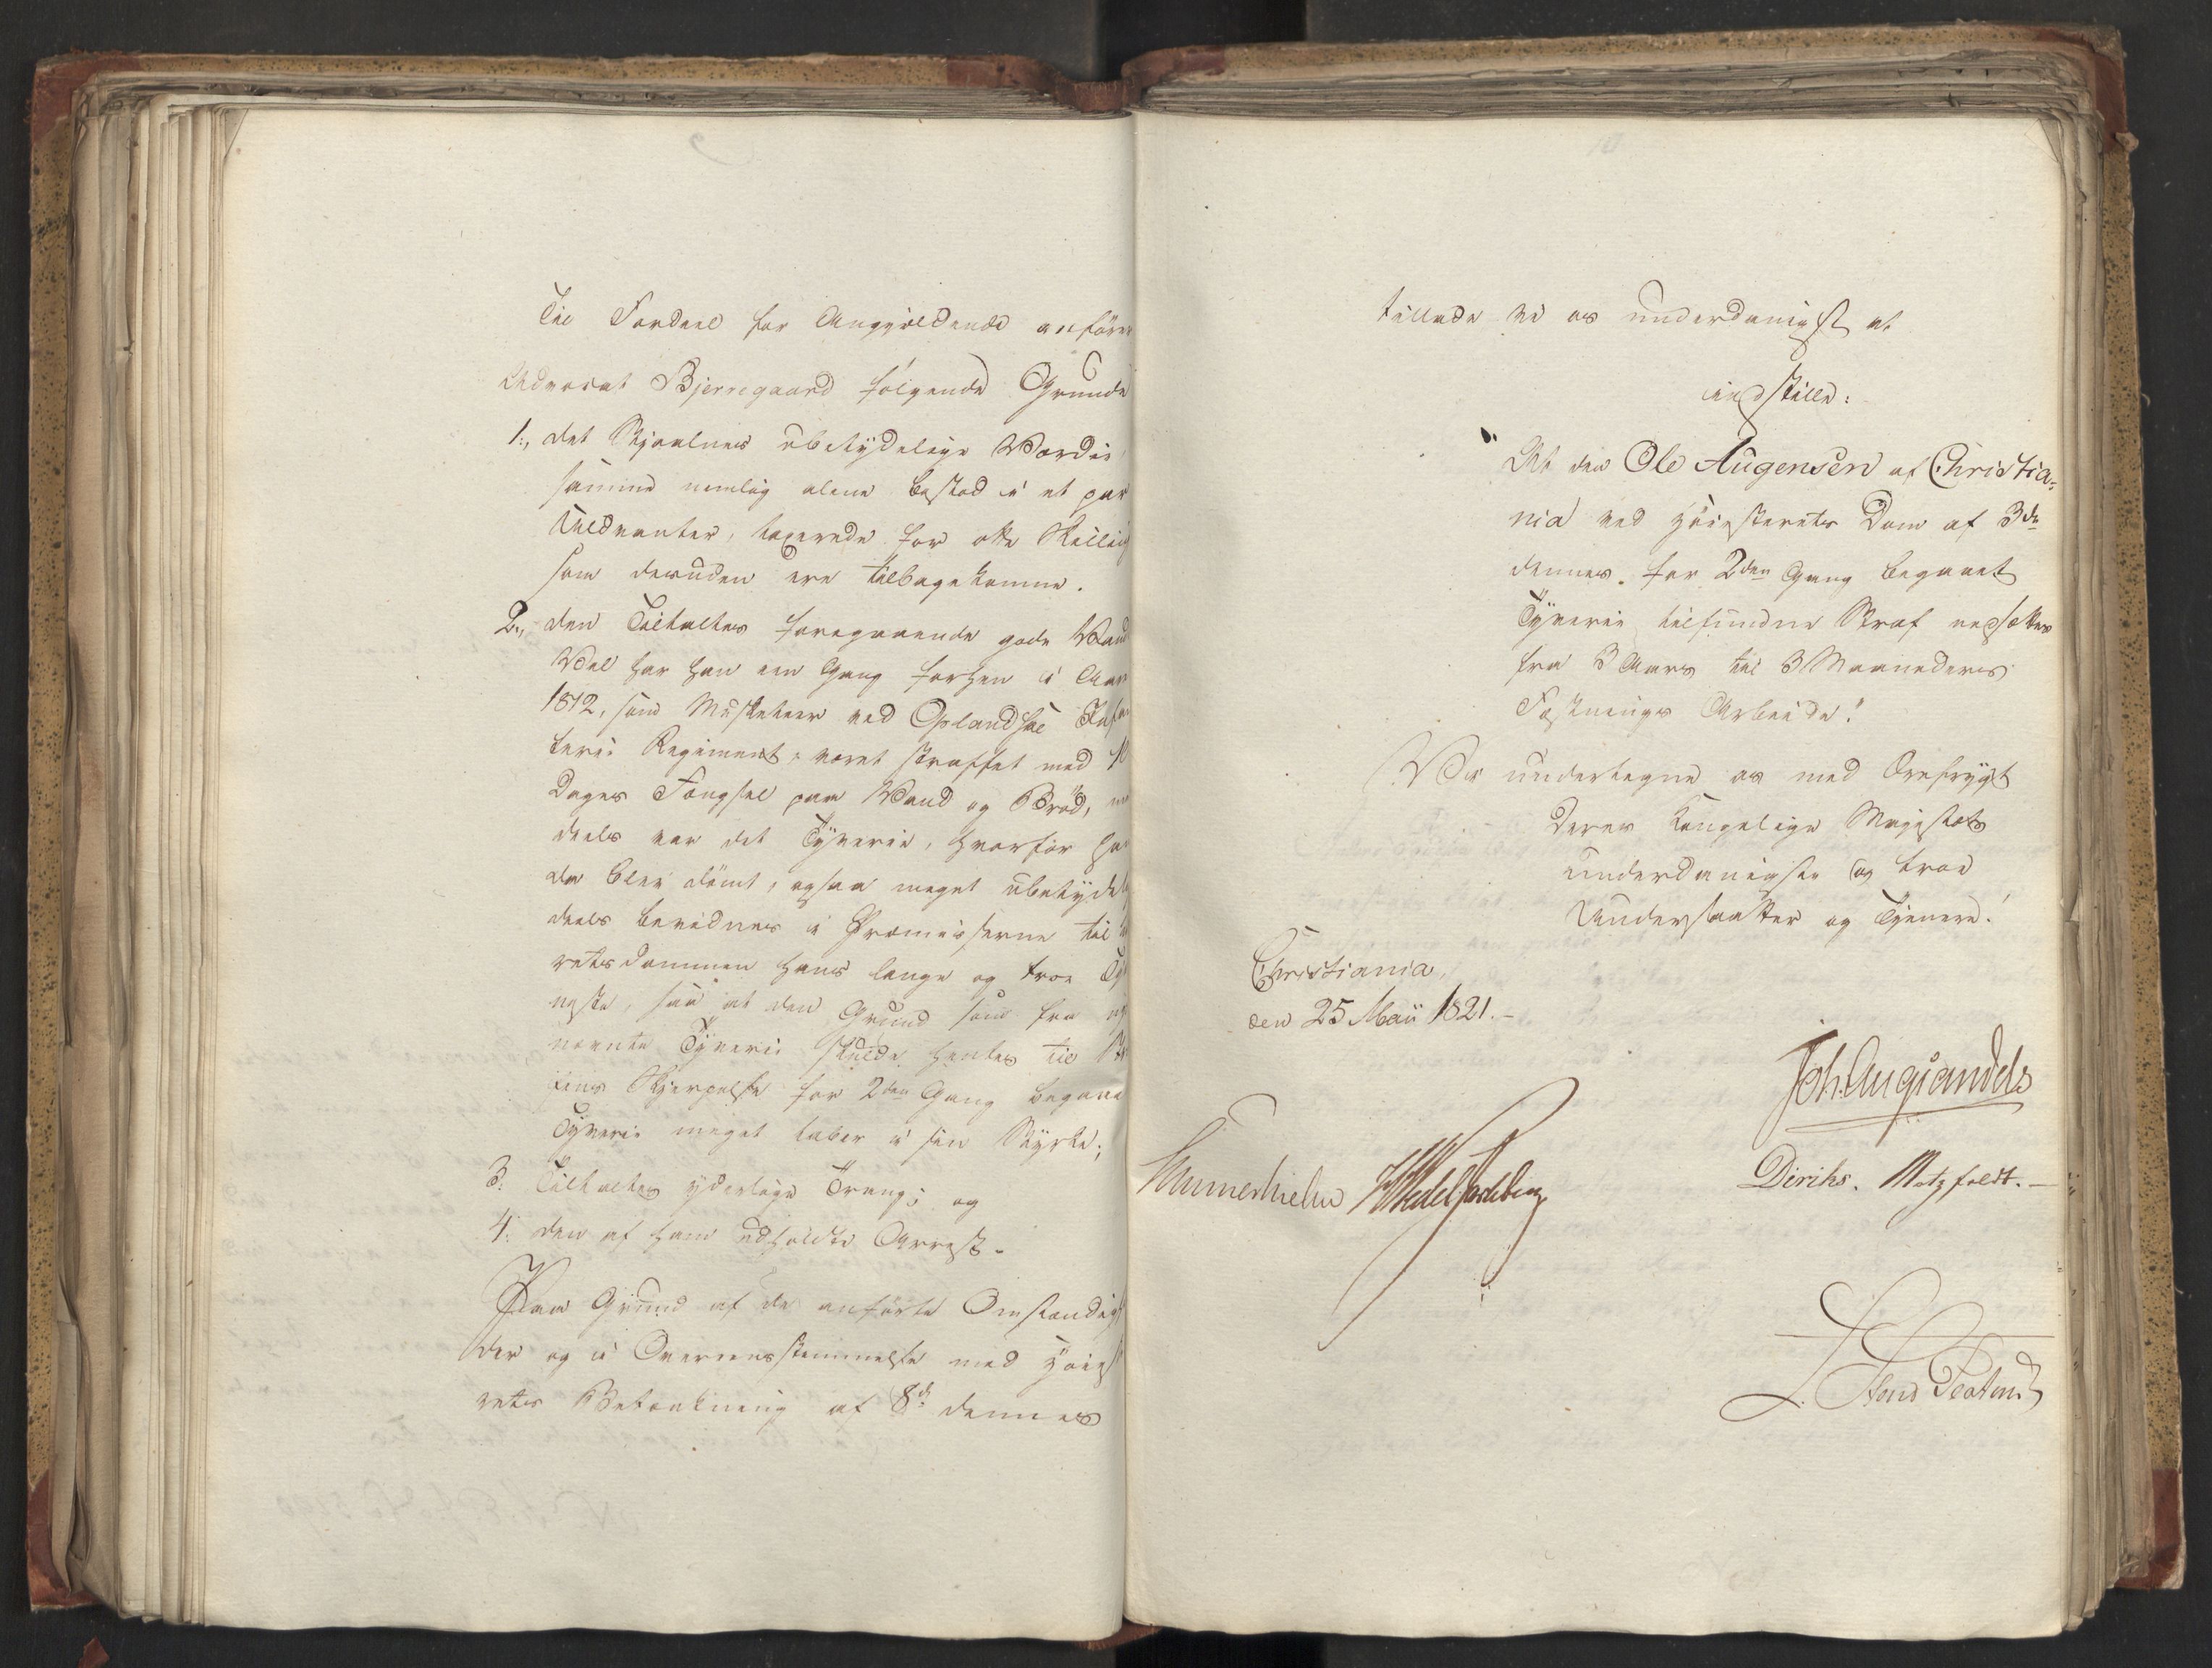 Til Fordeel for Angjeldende anfører
Advocat Bjerregaard følgende Grunde
1., det Stjaalnes ubetydelige Værdie,
samme nemlig alene bestod i et par
Uldvanter, taxerede for otte Skilling
som desuden ere tilbagekomne.
2., den Tiltaltes foregaaende gode Vand
Vel har han een Gang forhen i Aar
1812, som Musketeer ved Oplandske Infan
terie Regiment, været straffet med 10
Dages Fængsel paa Vand og Brød, men
deels var det Tyverie, hvorfor han
da blev dømt, ogsaa meget ubetydeligt
deels bevidnes i Præmisserne til
retsdommen hans lange og troe Tje
neste, saa at den Grund som fra op
nævnte Tyverie skulde hentes til Stra
fens Skjerpelse for 2den Gang begaaet
Tyverie meget taber i sin Styrke;
3. Tiltaltes yderlige Trang; og
4. den af ham udholdte Arrest.
Paa Grund af de anførte Omstændig
der og i Overeensstemmelse med Høieste
rets Betænkning af 8de dennes
tillade vi os underdanigst at
indstille:
"At den Ole Augensen af Christia-
nia ved Høiesterets Dom af 3de
dennes for 2den Gang begaaet
Tyverie tilfundne Straf nedsættes
fra 3 Aars til 3 Maaneders
Fæstnings Arbeide."
Vi undertegne os med Ærefrygt
Deres Kongelige Majestæts
underdanigste og troe
Undersaatter og Tjenere.
Christiania,
den 25 Maii 1821.-
Joh. Aug Sandels
Sommerhielm HWedelJarlsberg
Diriks. Motzfeldt.-
L. Stoud Platou